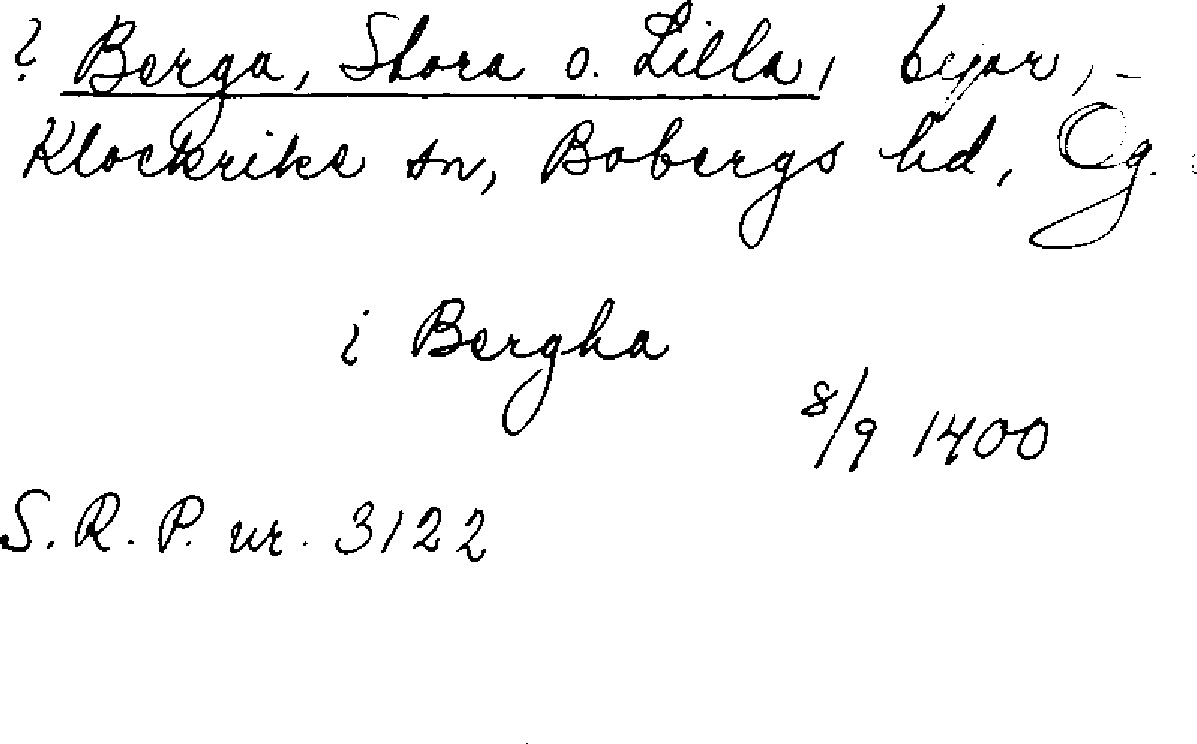 ? Berga, Stora o. Lilla, byar,
Klockrike sn, Bobergs hd, Ög.
i Bergha
8/9 1400
S. R. P. nr. 3122